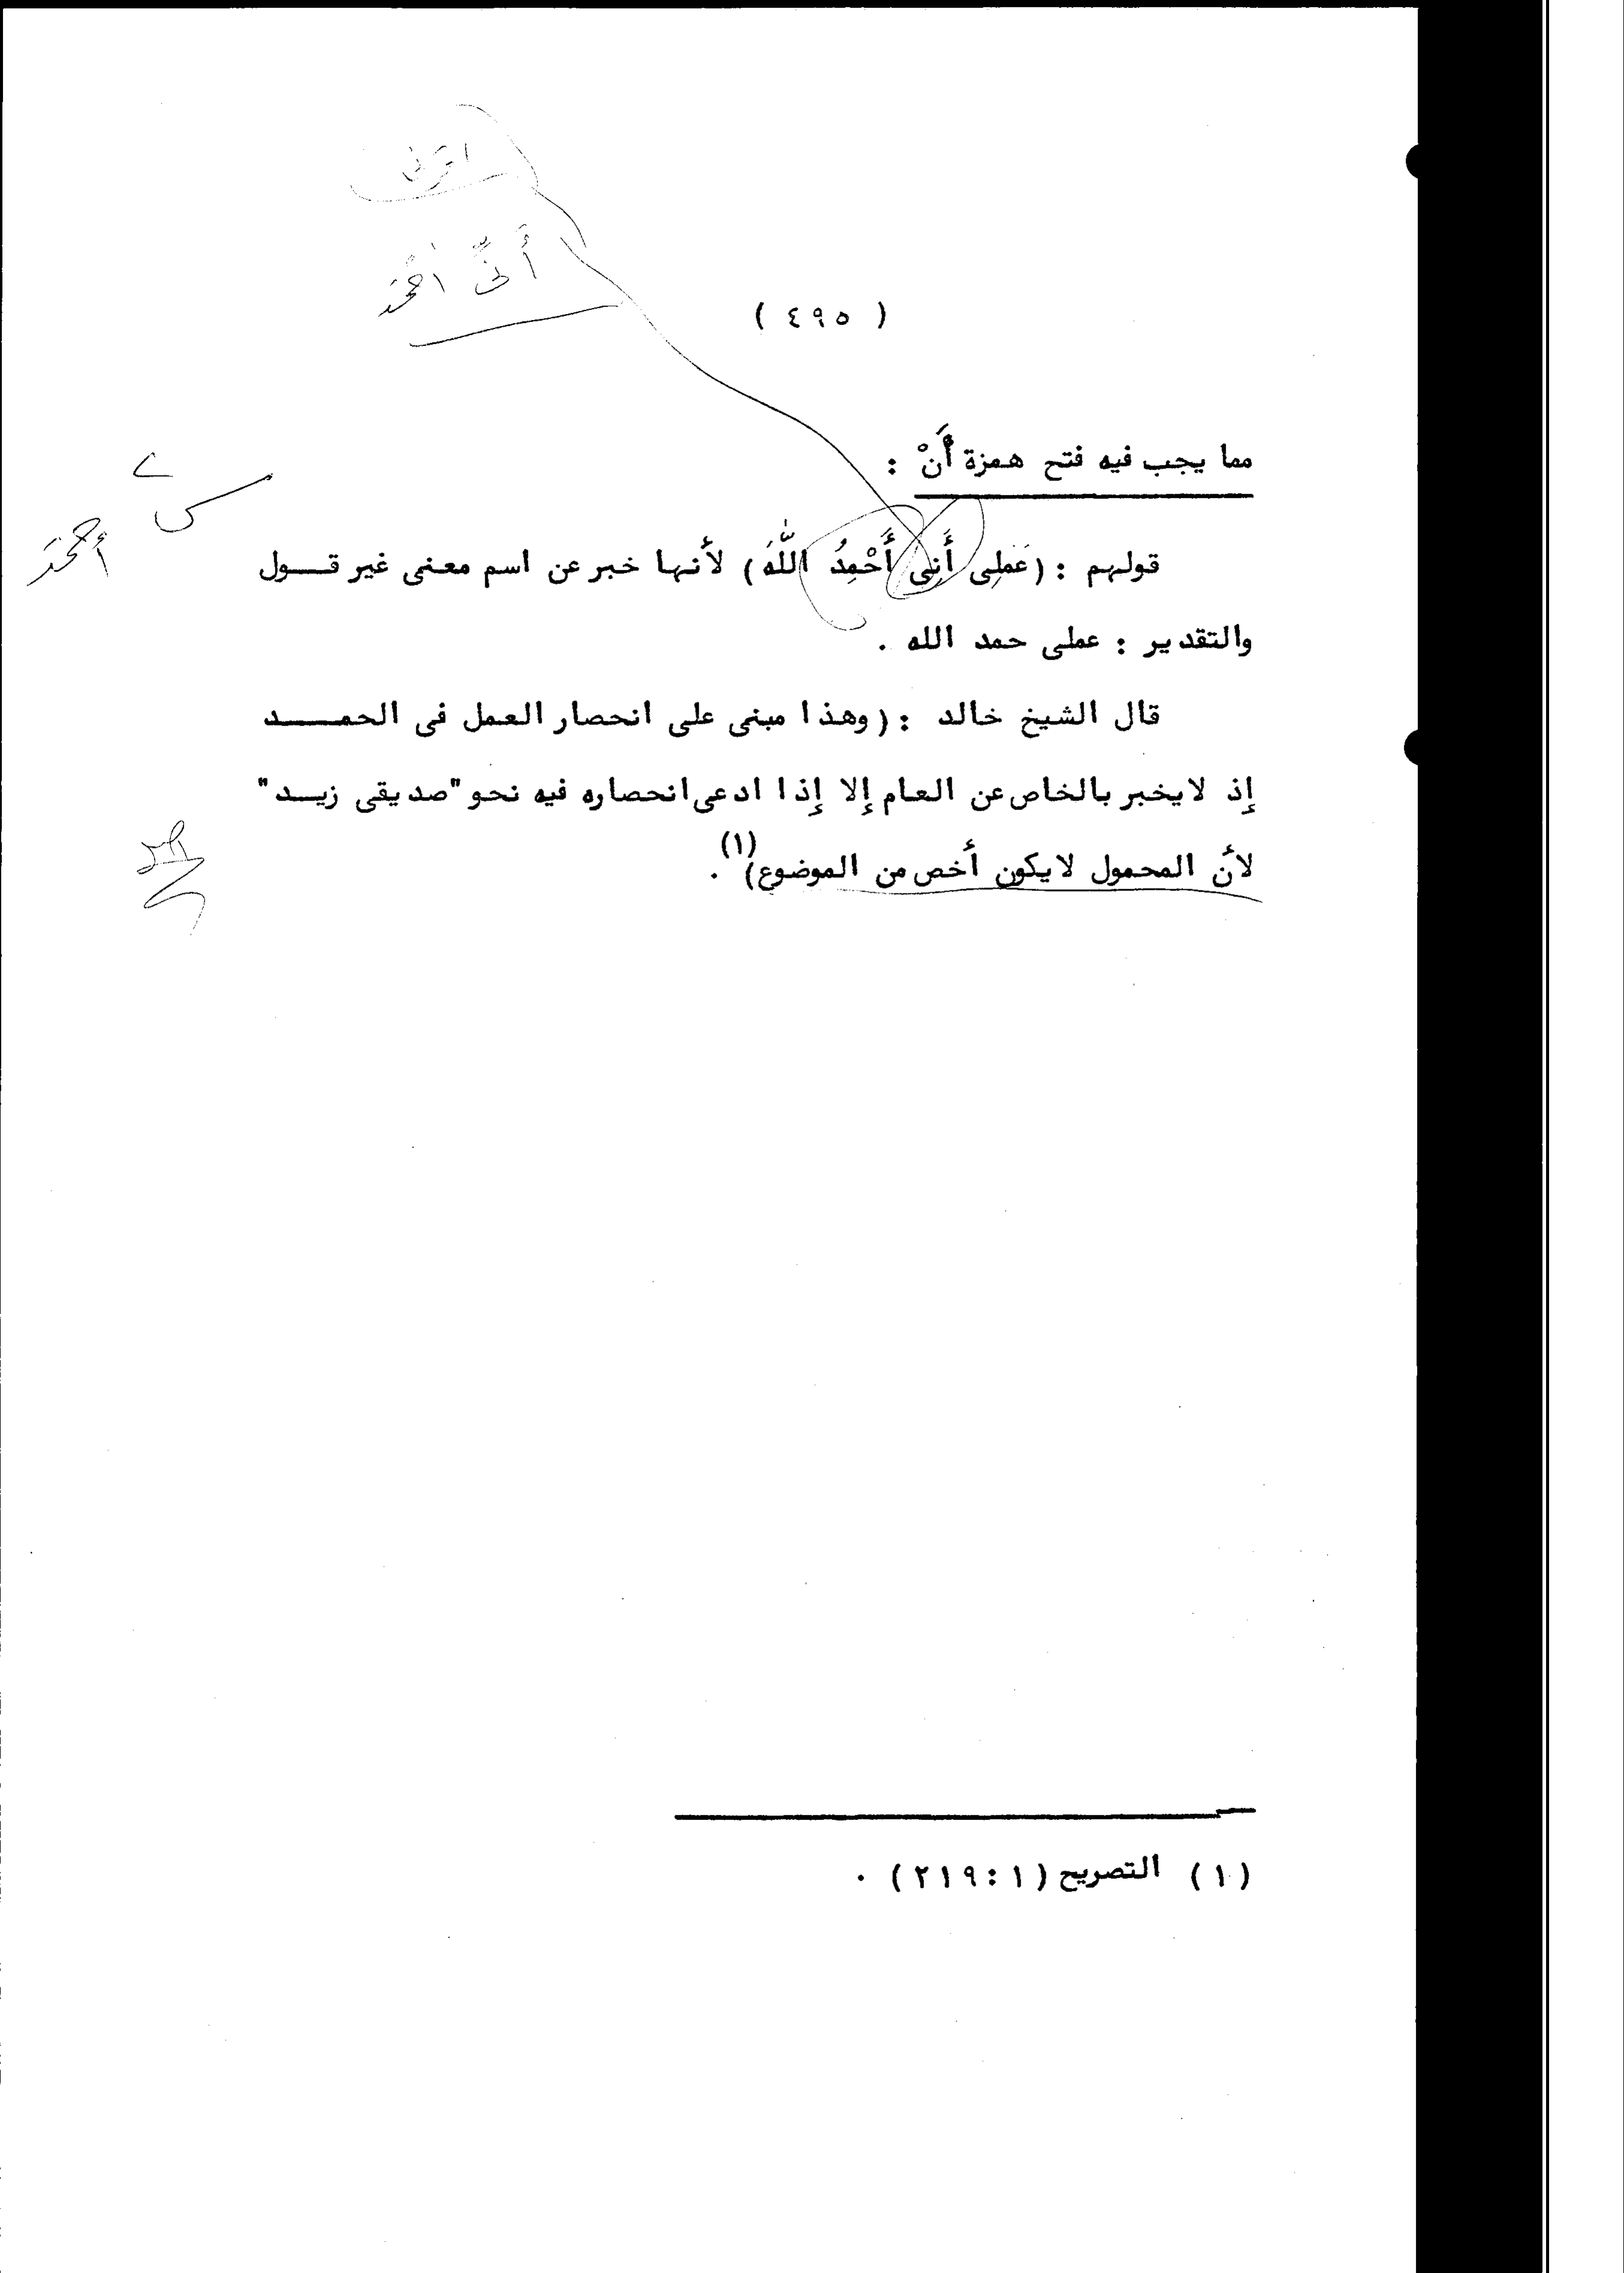 أنىّ أحمَد
( ٤٩٥ )
مما يجب فيه فتح همزة أَنْ :
قولهم : (عَمَلِى أَنِى أَحْمِدُ اللَّهَ) لأنها خبر عن اسم معنى غير قــول
والتقدير : عملى حمد الله .
قال الشيخ خالد : (وهذا مبنى على انحصار العمل فى الحمـــد
إذ لايخبر بالخاص عن العام إلا إذا ادعى انحصاره فيه نحو "صديقى زيــد"
لأنّ المحمول لايكون أخص من الموضوع)(١) .
أحمَد
(١) التصريح (١ : ٢١٩) .